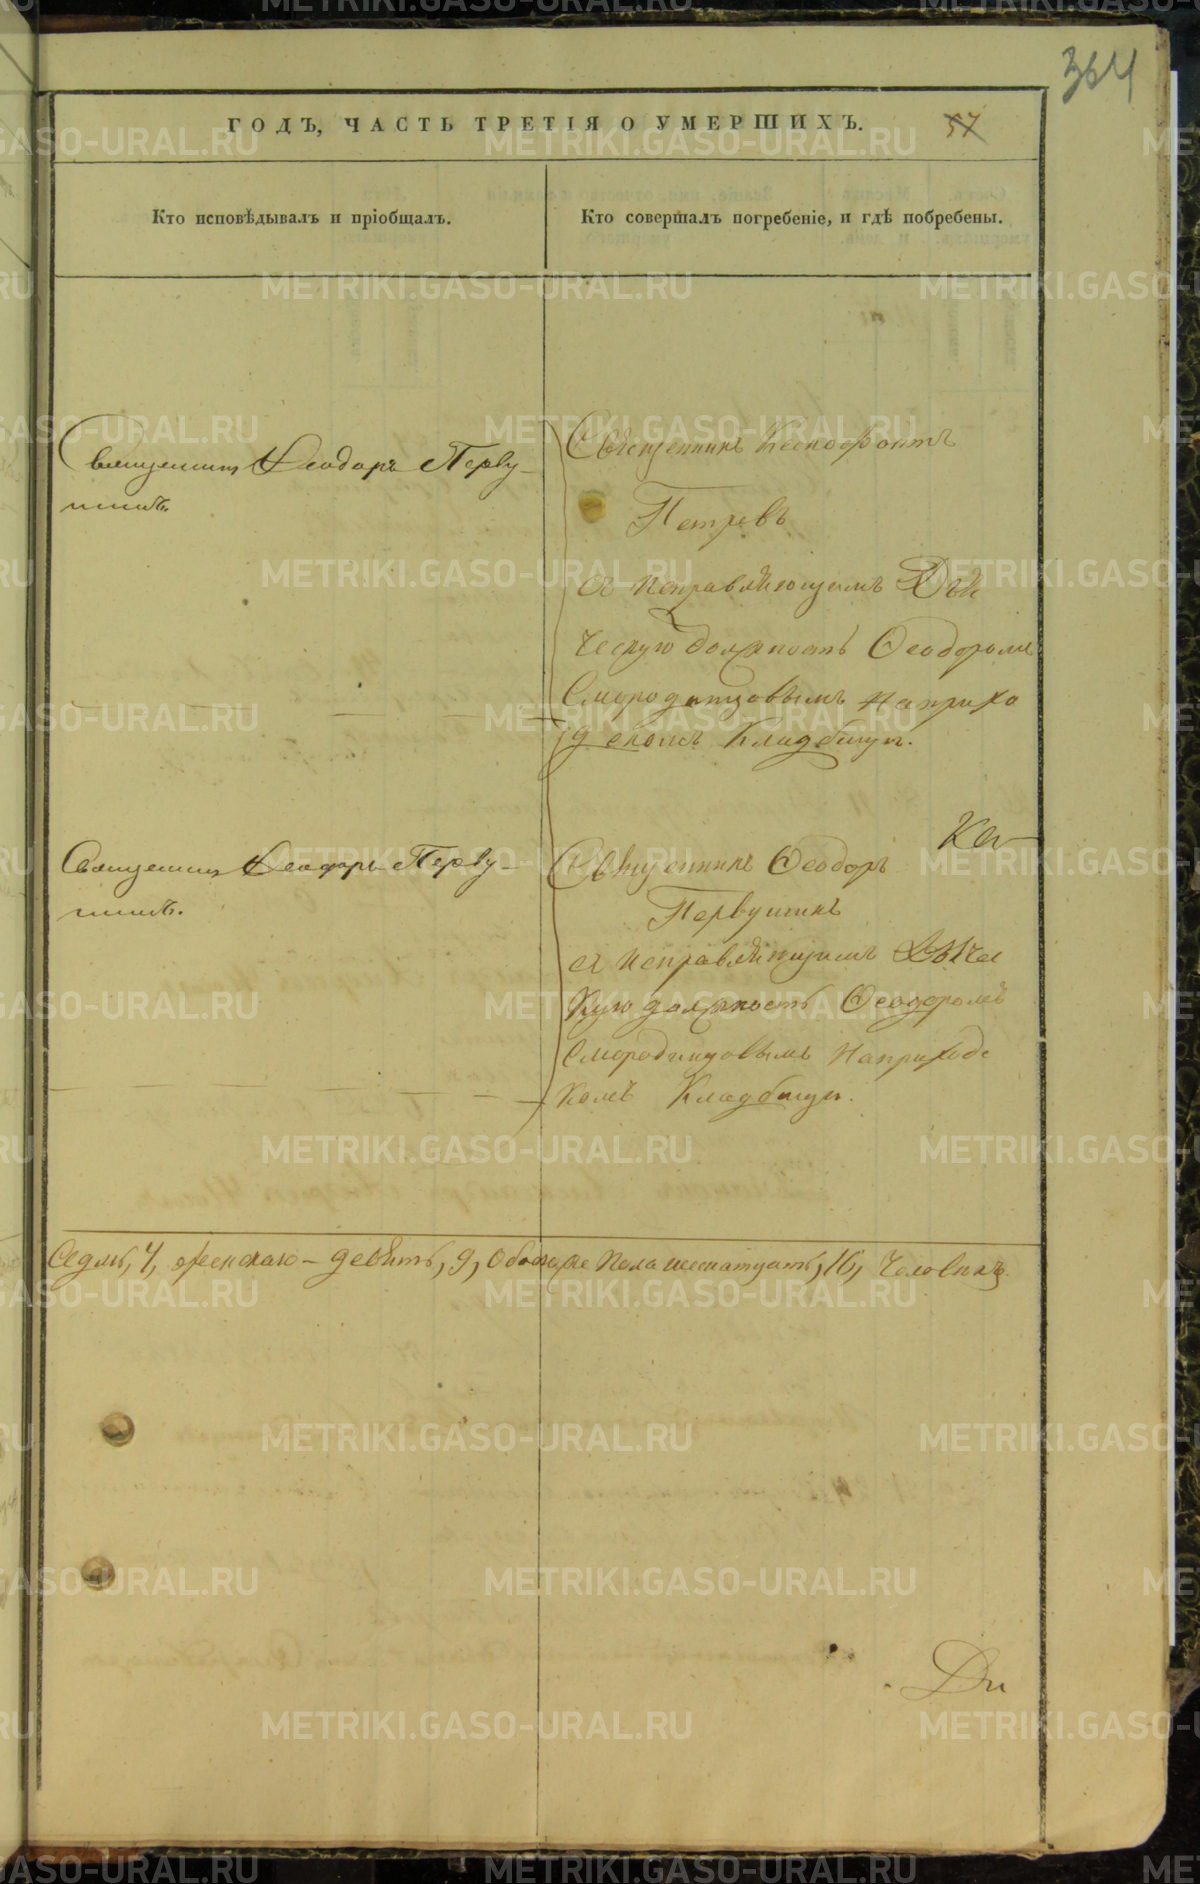 364
ГОДЪ, ЧАСТЬ ТРЕТІЯ О УМЕРШИХЪ. 57
Кто исповѣдывалъ и пріобщалъ.
Кто совершалъ погребеніе, и гдѣ побребены.
Священникъ Ѳеодоръ Перву-
шинъ.
Священникъ Ксенофонтъ
Петровъ
съ исправляющимъ Дья
ческую должность Ѳеодоромъ
Смородинцовымъ на прихо
дскомъ Кладбищѣ.
Священникъ Ѳеодоръ Перву-
шинъ.
Священникъ Ѳеодоръ
Первушинъ
съ исправляющимъ Дьяче
скую должность Ѳеодоромъ
Смородинцовымъ на приход
комъ Кладбищѣ.
Седмь, 7, женскаго - девять, 9, обоего же пола шестнатцать, 16, Человѣкъ.
METRIKI.GASO-URAL.RU